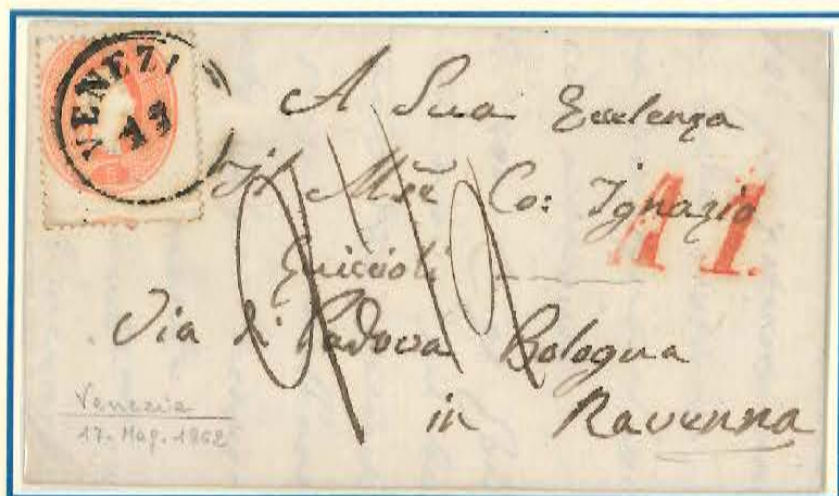 VENEZI
17
A Sua Eccelenza
Il Mse Co: Ignazio
Guiccioli
A 1.
Via di Padova Bologna
in Ravenna
Venezia
17. Mag. 1862